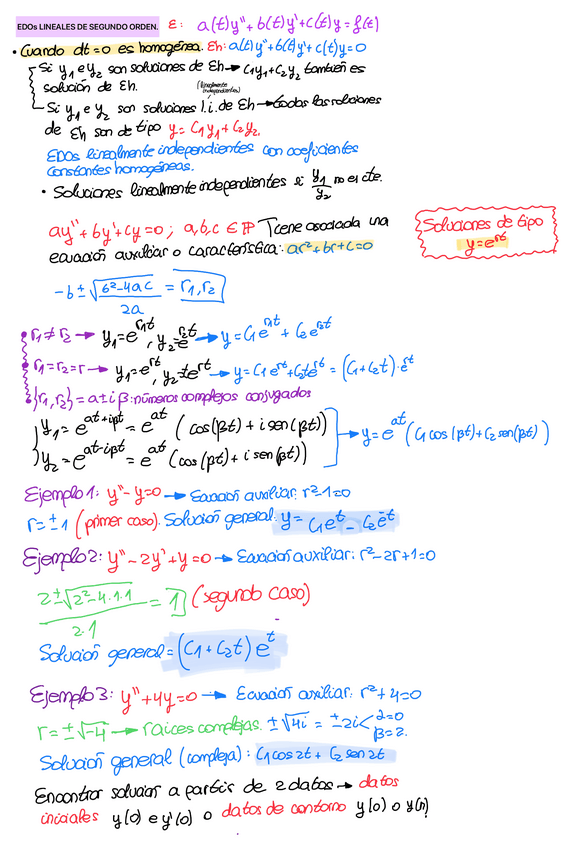 EDOs LINEALES DE SEGUNDO ORDEN. ε: a(t)y''+b(t)y'+c(t)y=f(t)
• Cuando dt=0 es homogénea. Eh: a(t)y''+b(t)y'+c(t)y=0
Si y₁ e y₂ son soluciones de Eh → C₁y₁+C₂y₂ también es
solución de Eh.
(linealmente independientes)
Si y₁ e y₂ son soluciones l.i. de Eh → todas las soluciones
de Eh son de tipo y=C₁y₁+C₂y₂.
EDOs linealmente independientes con coeficientes
constantes homogéneas.
• Soluciones linealmente independientes si y₁/y₂ no es cte.
ay''+by'+cy=0; a,b,c ∈ ℝ Tiene asociada una
ecuación auxiliar o característica: ar²+br+c=0
Soluciones de tipo
y=e^rt
(-b±√(b²-4ac))/2a = r₁,r₂
r₁≠r₂ → y₁=e^r₁t, y₂=e^r₂t → y=C₁e^r₁t + C₂e^r₂t
r₁=r₂=r → y₁=e^rt, y₂=te^rt → y=C₁e^rt+C₂te^rt = (C₁+C₂t)·e^rt
{r₁,r₂}=a±iβ: números complejos conjugados
y₁=e^at+iβt = e^at (cos(βt)+i sen(βt))
y₂=e^at-iβt = e^at (cos(βt)+i sen(βt))
→ y=e^at (C₁cos(βt)+C₂sen(βt))
Ejemplo 1: y''-y=0 → Ecuación auxiliar: r²-1=0
r=±1 (primer caso). Solución general: y= C₁e^t - C₂e^-t
Ejemplo 2: y''-2y'+y=0 → Ecuación auxiliar: r²-2r+1=0
(2±√(2²-4·1·1))/2·1 = 1 (segundo caso)
Solución general = (C₁+C₂t)e^t
Ejemplo 3: y''+4y=0 → Ecuación auxiliar: r²+4=0
r=±√-4 → raíces complejas. ±√4i = ±2i < α=0
β=2.
Solución general (compleja): C₁cos2t + C₂sen2t
Encontrar solución a partir de 2 datos → datos
iniciales y(0) e y'(0) o datos de contorno y(0) o y(π)